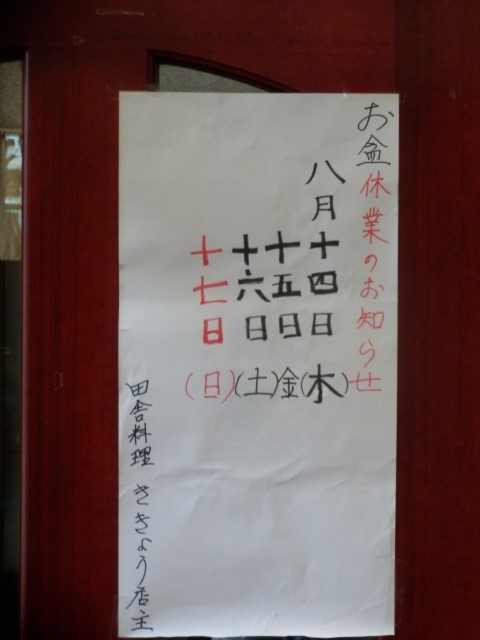 お盆休業のお知らせ
八月十四日(木)
十五日金
十六日(土)
十七日(日)
田舎料理 ききょう店主